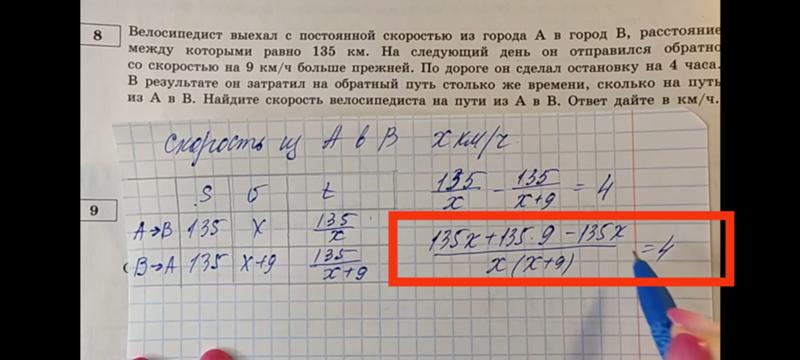 8
Велосипедист выехал с постоянной скоростью из города А в город В, расстояние
между которыми равно 135 км. На следующий день он отправился обратно
со скоростью на 9 км/ч больше прежней. По дороге он сделал остановку на 4 часа.
В результате он затратил на обратный путь столько же времени, сколько на путь
из А в В. Найдите скорость велосипедиста на пути из А в В. Ответ дайте в км/ч.
Скорость из А в В х км/ч.
S υ t
А→В 135 х 135/х
В→А 135 х+9 135/(х+9)
135/х - 135/(х+9) = 4
(135х+135·9-135х)/(х(х+9)) = 4
9